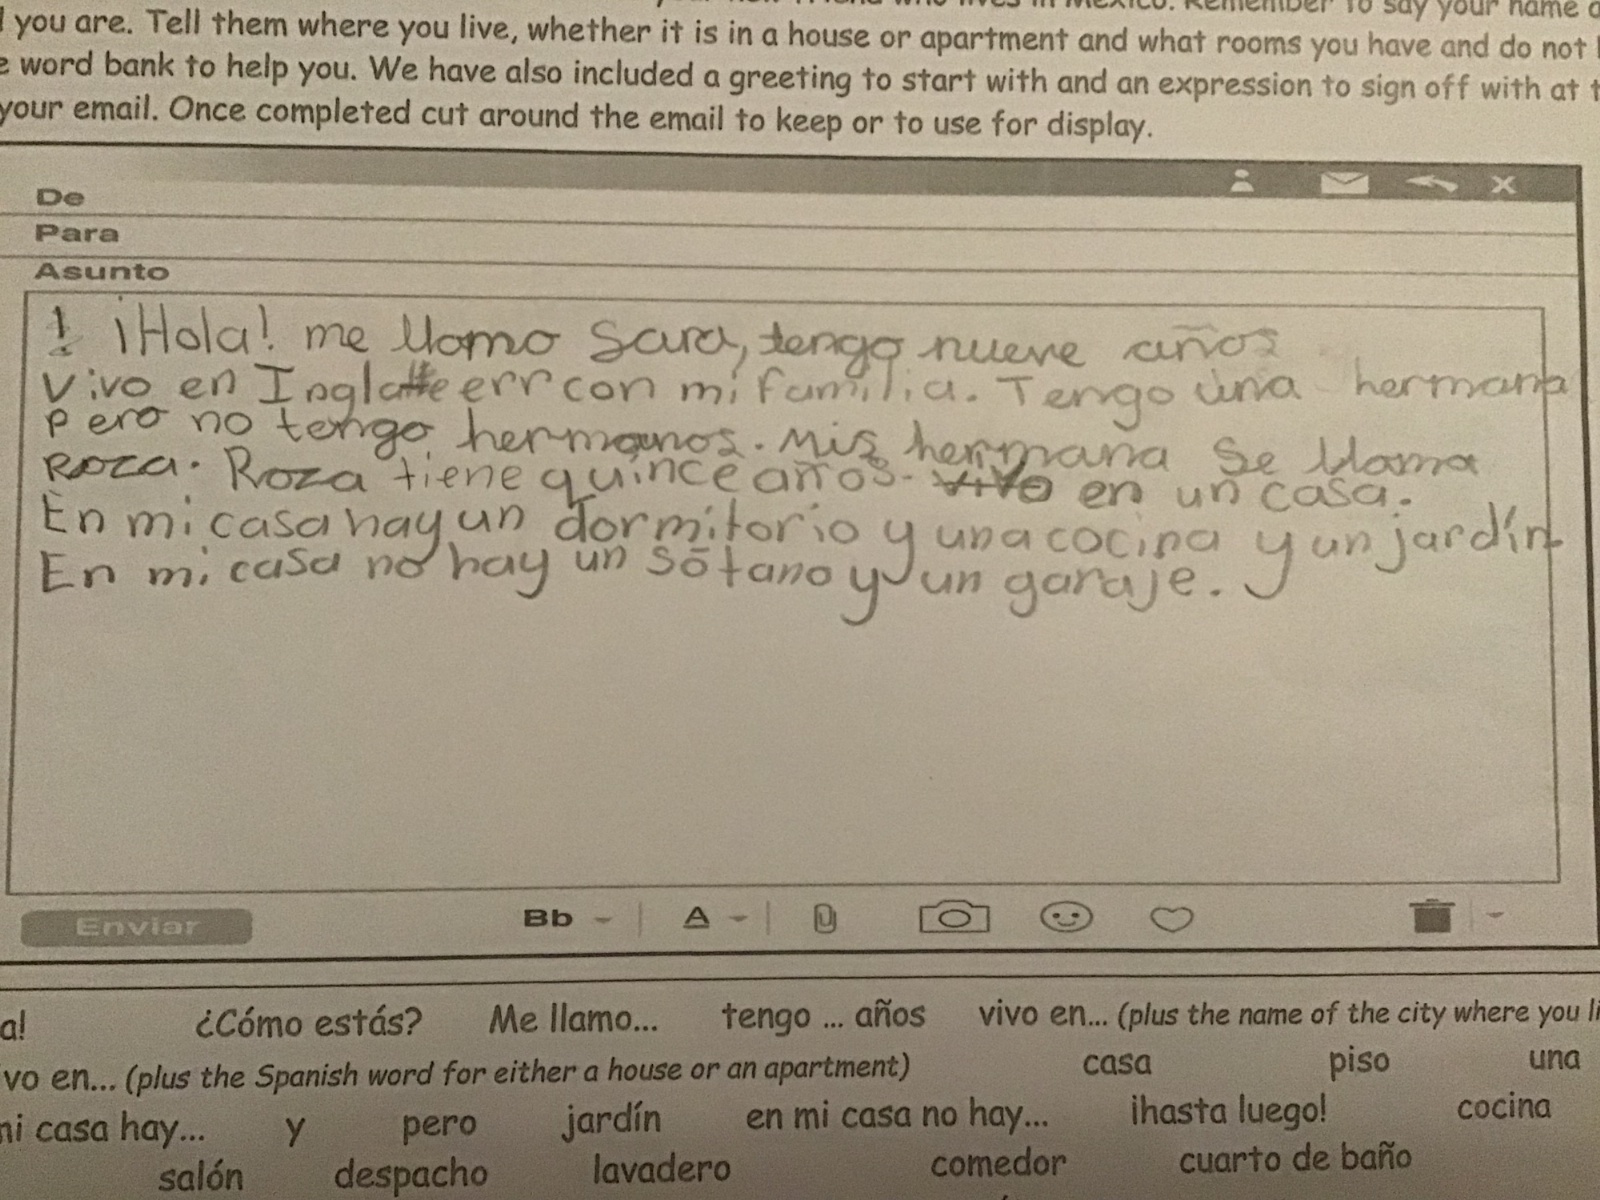 you are. Tell them where you live, whether it is in a house or apartment and what rooms you have and do not
word bank to help you. We have also included a greeting to start with and an expression to sign off with at
your email. Once completed cut around the email to keep or to use for display.
De
Para
Asunto
! ¡Hola! me llamo Sara, tengo nueve años
Vivo en Inglatteerr con mi familia. Tengo una hermana
pero no tengo hermanos. Mis hermana se llama
Roza. Roza tiene quince años. vivo en un casa.
En mi casa hay un dormitorio y una cocina y un jardín
En mi casa no hay un sótano y un garaje.
Enviar
Bb A
a! ¿Cómo estás? Me llamo... tengo ... años vivo en... (plus the name of the city where you li
vo en... (plus the Spanish word for either a house or an apartment) casa piso una
mi casa hay... y pero jardín en mi casa no hay... ¡hasta luego! cocina
salón despacho lavadero comedor cuarto de baño